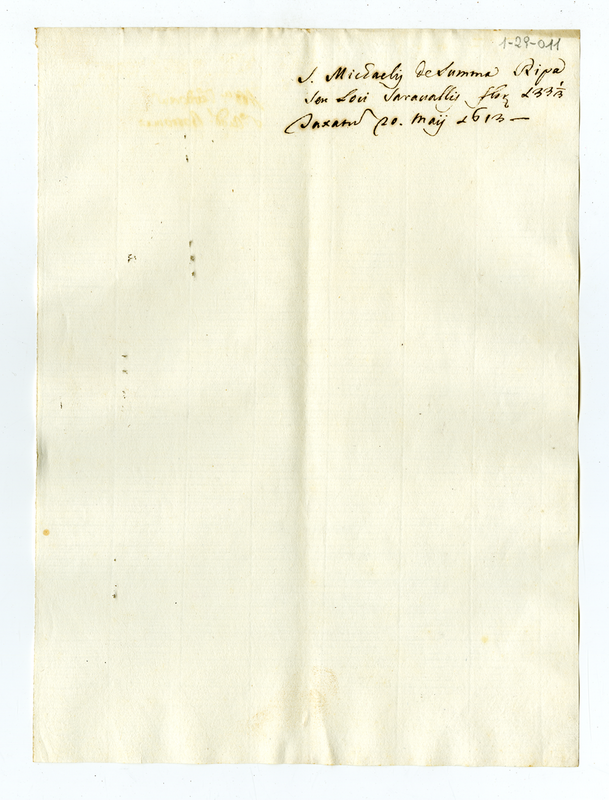 1-29-011
S. Michaelis de Summa Ripa
seu Loci Taravallis flor. 133 1/3
Taxatur 20. Maij 1613 —